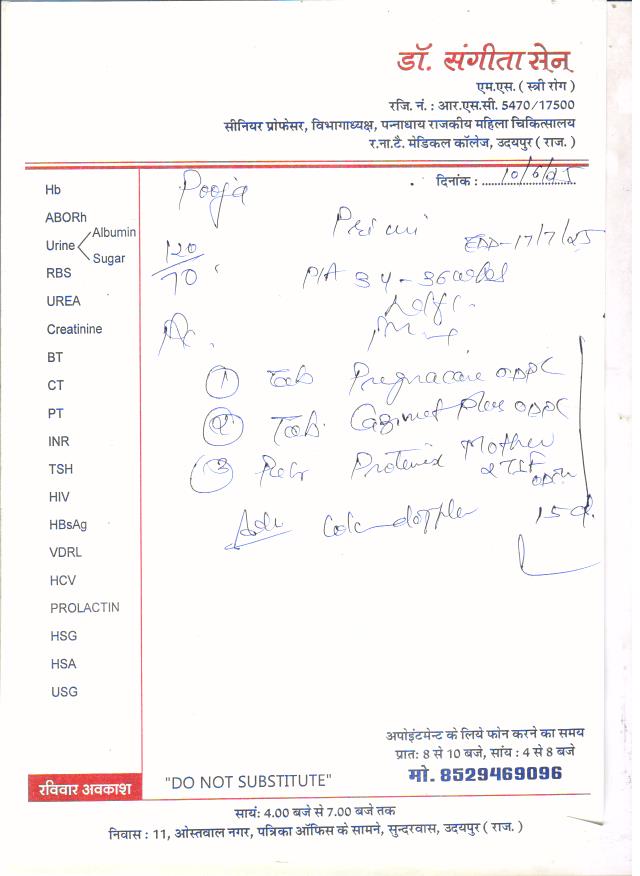 डॉ. संगीता सेन
एम.एस. ( स्त्री रोग )
रजि. नं. : आर.एस.सी. 5470/17500
सीनियर प्रोफेसर, विभागाध्यक्ष, पन्नाधाय राजकीय महिला चिकित्सालय
र.ना.टै. मेडिकल कॉलेज, उदयपुर ( राज. )
दिनांक : 10/6/25
Hb
ABORh
Urine Albumin
Sugar
RBS
UREA
Creatinine
BT
CT
PT
INR
TSH
HIV
HBsAg
VDRL
HCV
PROLACTIN
HSG
HSA
USG
Pooja
EDD-17/7/25
120
70
P/A 34-36 wks
① Tab Pregnacare
② Tab. Plus
③ Mother
2TSF
Adv Color doppler
15 d.
अपोइंटमेन्ट के लिये फोन करने का समय
प्रात: 8 से 10 बजे, सांय : 4 से 8 बजे
मो. 8529469096
रविवार अवकाश
"DO NOT SUBSTITUTE"
सायं: 4.00 बजे से 7.00 बजे तक
निवास : 11, ओस्तवाल नगर, पत्रिका ऑफिस के सामने, सुन्दरवास, उदयपुर ( राज. )